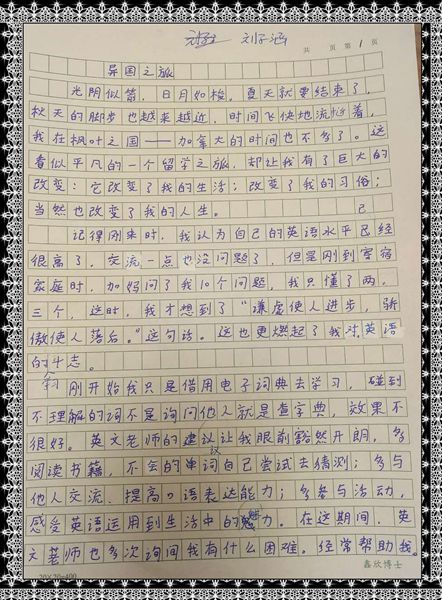 刘子涵
共 页 第 1 页
异国之旅
光阴似箭，日月如梭。夏天就要结束了，
秋天的脚步也越来越近，时间飞快地流逝着，
我在枫叶之国——加拿大的时间也不多了。这
看似平凡的一个留学之旅，却让我有了巨大的
改变：它改变了我的生活；改变了我的习俗；
当然也改变了我的人生。
己
记得刚来时，我认为自己的英语水平已经
很高了，交流一点也没问题了，但是刚到寄宿
家庭时，加妈问了我10个问题，我只懂了两、
三个，这时，我才想到了“谦虚使人进步，骄
傲使人落后。”这句话。这也更燃起了我对英语
的斗志。
刚开始我只是借用电子词典去学习，碰到
不理解的词不是询问他人就是查字典，效果不
很好。英文老师的建议让我眼前豁然开朗，多
议
阅读书籍，不会的单词自己尝试去猜测；多与
他人交流，提高口语表达能力；多参与活动，
感受英语运用到生活中的魅力。在这期间，英
文老师也多次询问我有什么困难。经常帮助我。
20×20=400
鑫欣博士